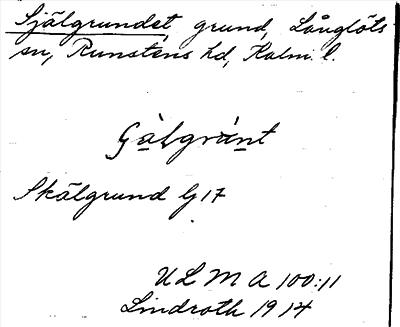 Själgrundet, grund, Långlöts
sn, Runstens hd, Kalm. l.
Skälgrund G 17
ULMA 100:11
Lindroth 1914